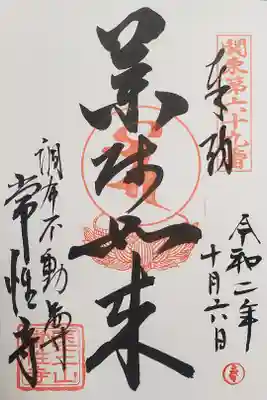 関東第六十九番
奉拝
令和二年
十月六日
薬師如来
調布不動尊
常性寺